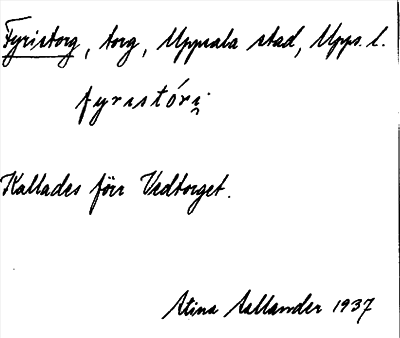 Fyristorg, torg, Uppsala stad, Upps. l.
fyrıstórı̯
Kallades förr Vedtorget.
Stina Aallander 1937